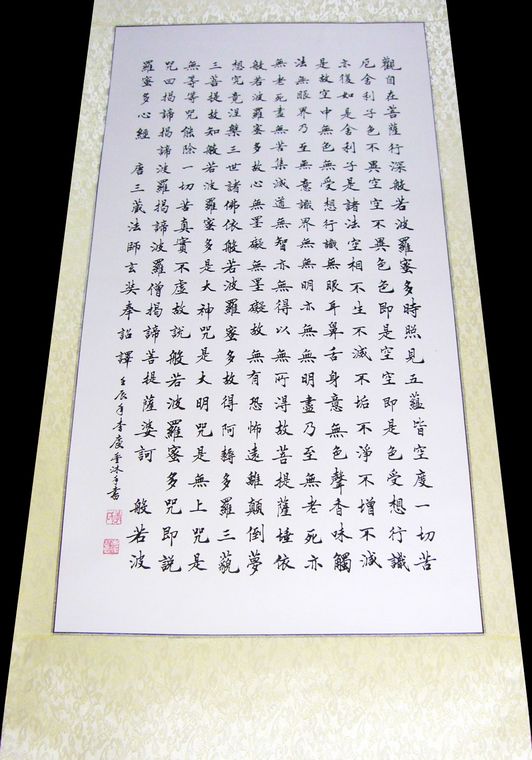 觀自在菩薩行深般若波羅蜜多時照見五蘊皆空度一切苦
厄舍利子色不異空空不異色色即是空空即是色受想行識
亦復如是舍利子是諸法空相不生不滅不垢不淨不增不減
是故空中無色無受想行識無眼耳鼻舌身意無色聲香味觸
法無眼界乃至無意識界無無明亦無無明盡乃至無老死亦
無老死盡無苦集滅道無智亦無得以無所得故菩提薩埵依
般若波羅蜜多故心無罣礙無罣礙故無有恐怖遠離顛倒夢
想究竟涅槃三世諸佛依般若波羅蜜多故得阿耨多羅三藐
三菩提故知般若波羅蜜多是大神咒是大明咒是無上咒是
無等等咒能除一切苦真實不虛故說般若波羅蜜多咒即說
咒曰揭諦揭諦波羅揭諦波羅僧揭諦菩提薩婆訶 般若波
羅蜜多心經 唐三藏法師玄奘奉詔譯 壬辰年李慶平沐手書